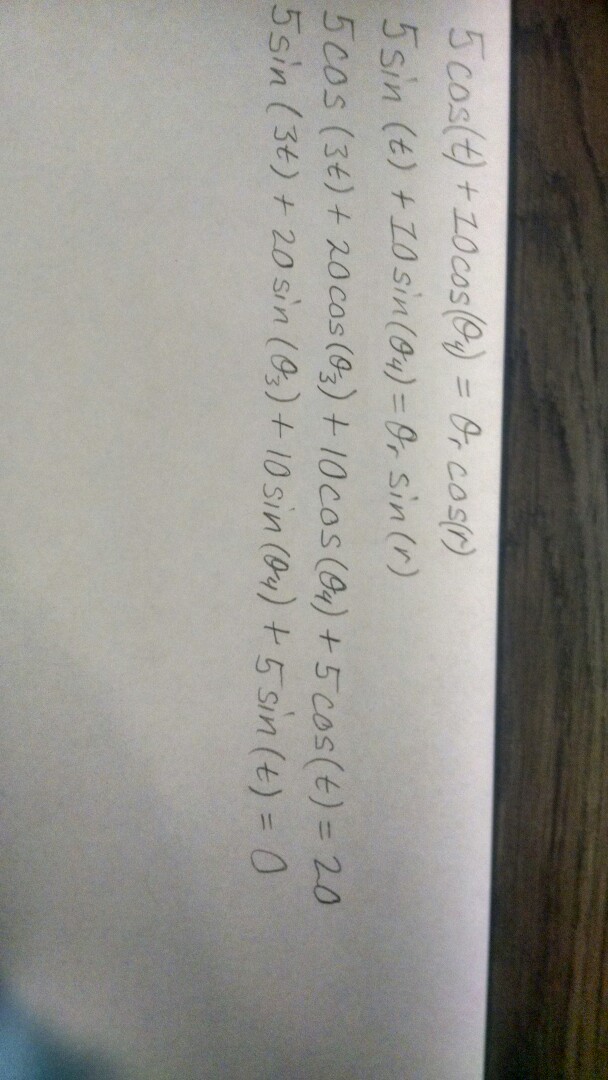 5 cos(t) + 10cos(θ4) = θr cos(r)
5 sin (t) + 10sin(θ4) = θr sin(r)
5 cos (3t) + 20cos(θ3) + 10cos(θ4) + 5 cos(t) = 20
5 sin (3t) + 20 sin (θ3) + 10 sin (θ4) + 5 sin(t) = 0